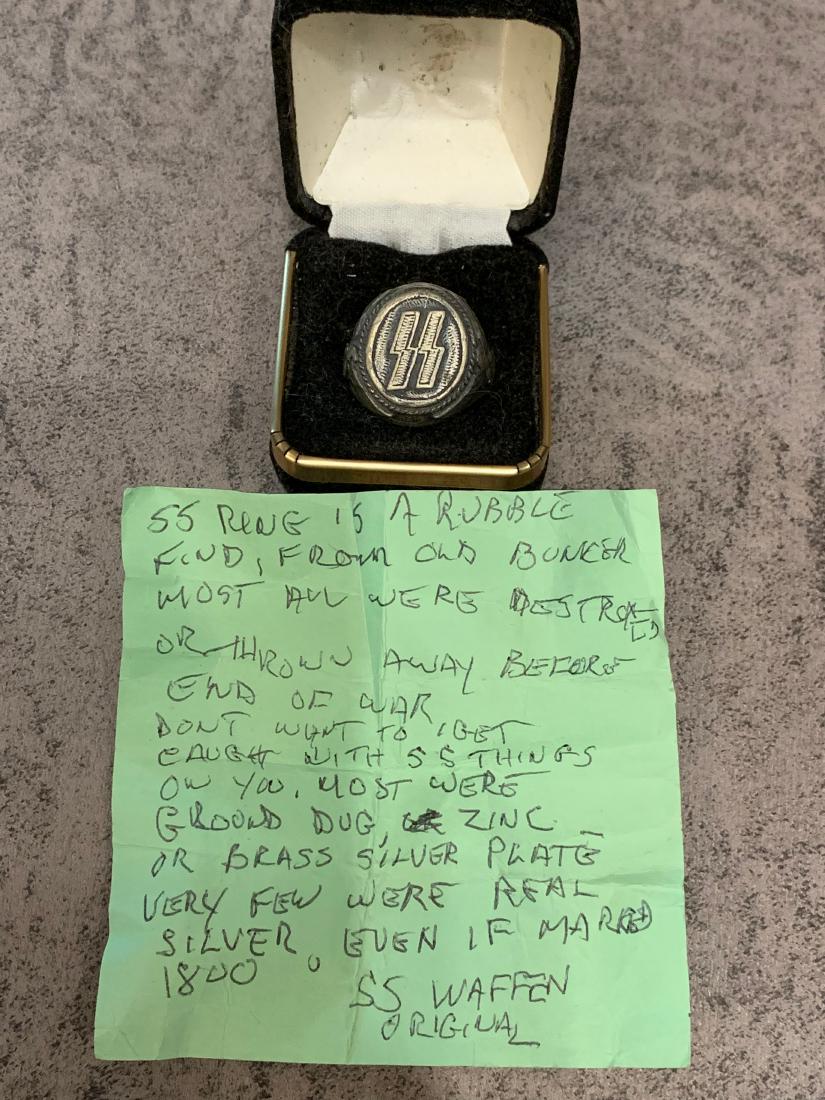 SS
SS RING IS A RUBBLE
FIND, FROM OLD BUNKER
MOST ALL WERE DESTROYED
OR THROWN AWAY BEFORE
END OF WAR
DONT WANT TO GET
CAUGHT WITH SS THINGS
ON YOU. MOST WERE
GROUND DUG, ZINC
OR BRASS SILVER PLATE
VERY FEW WERE REAL
SILVER, EVEN IF MARKED
1800
SS WAFFEN
ORIGINAL